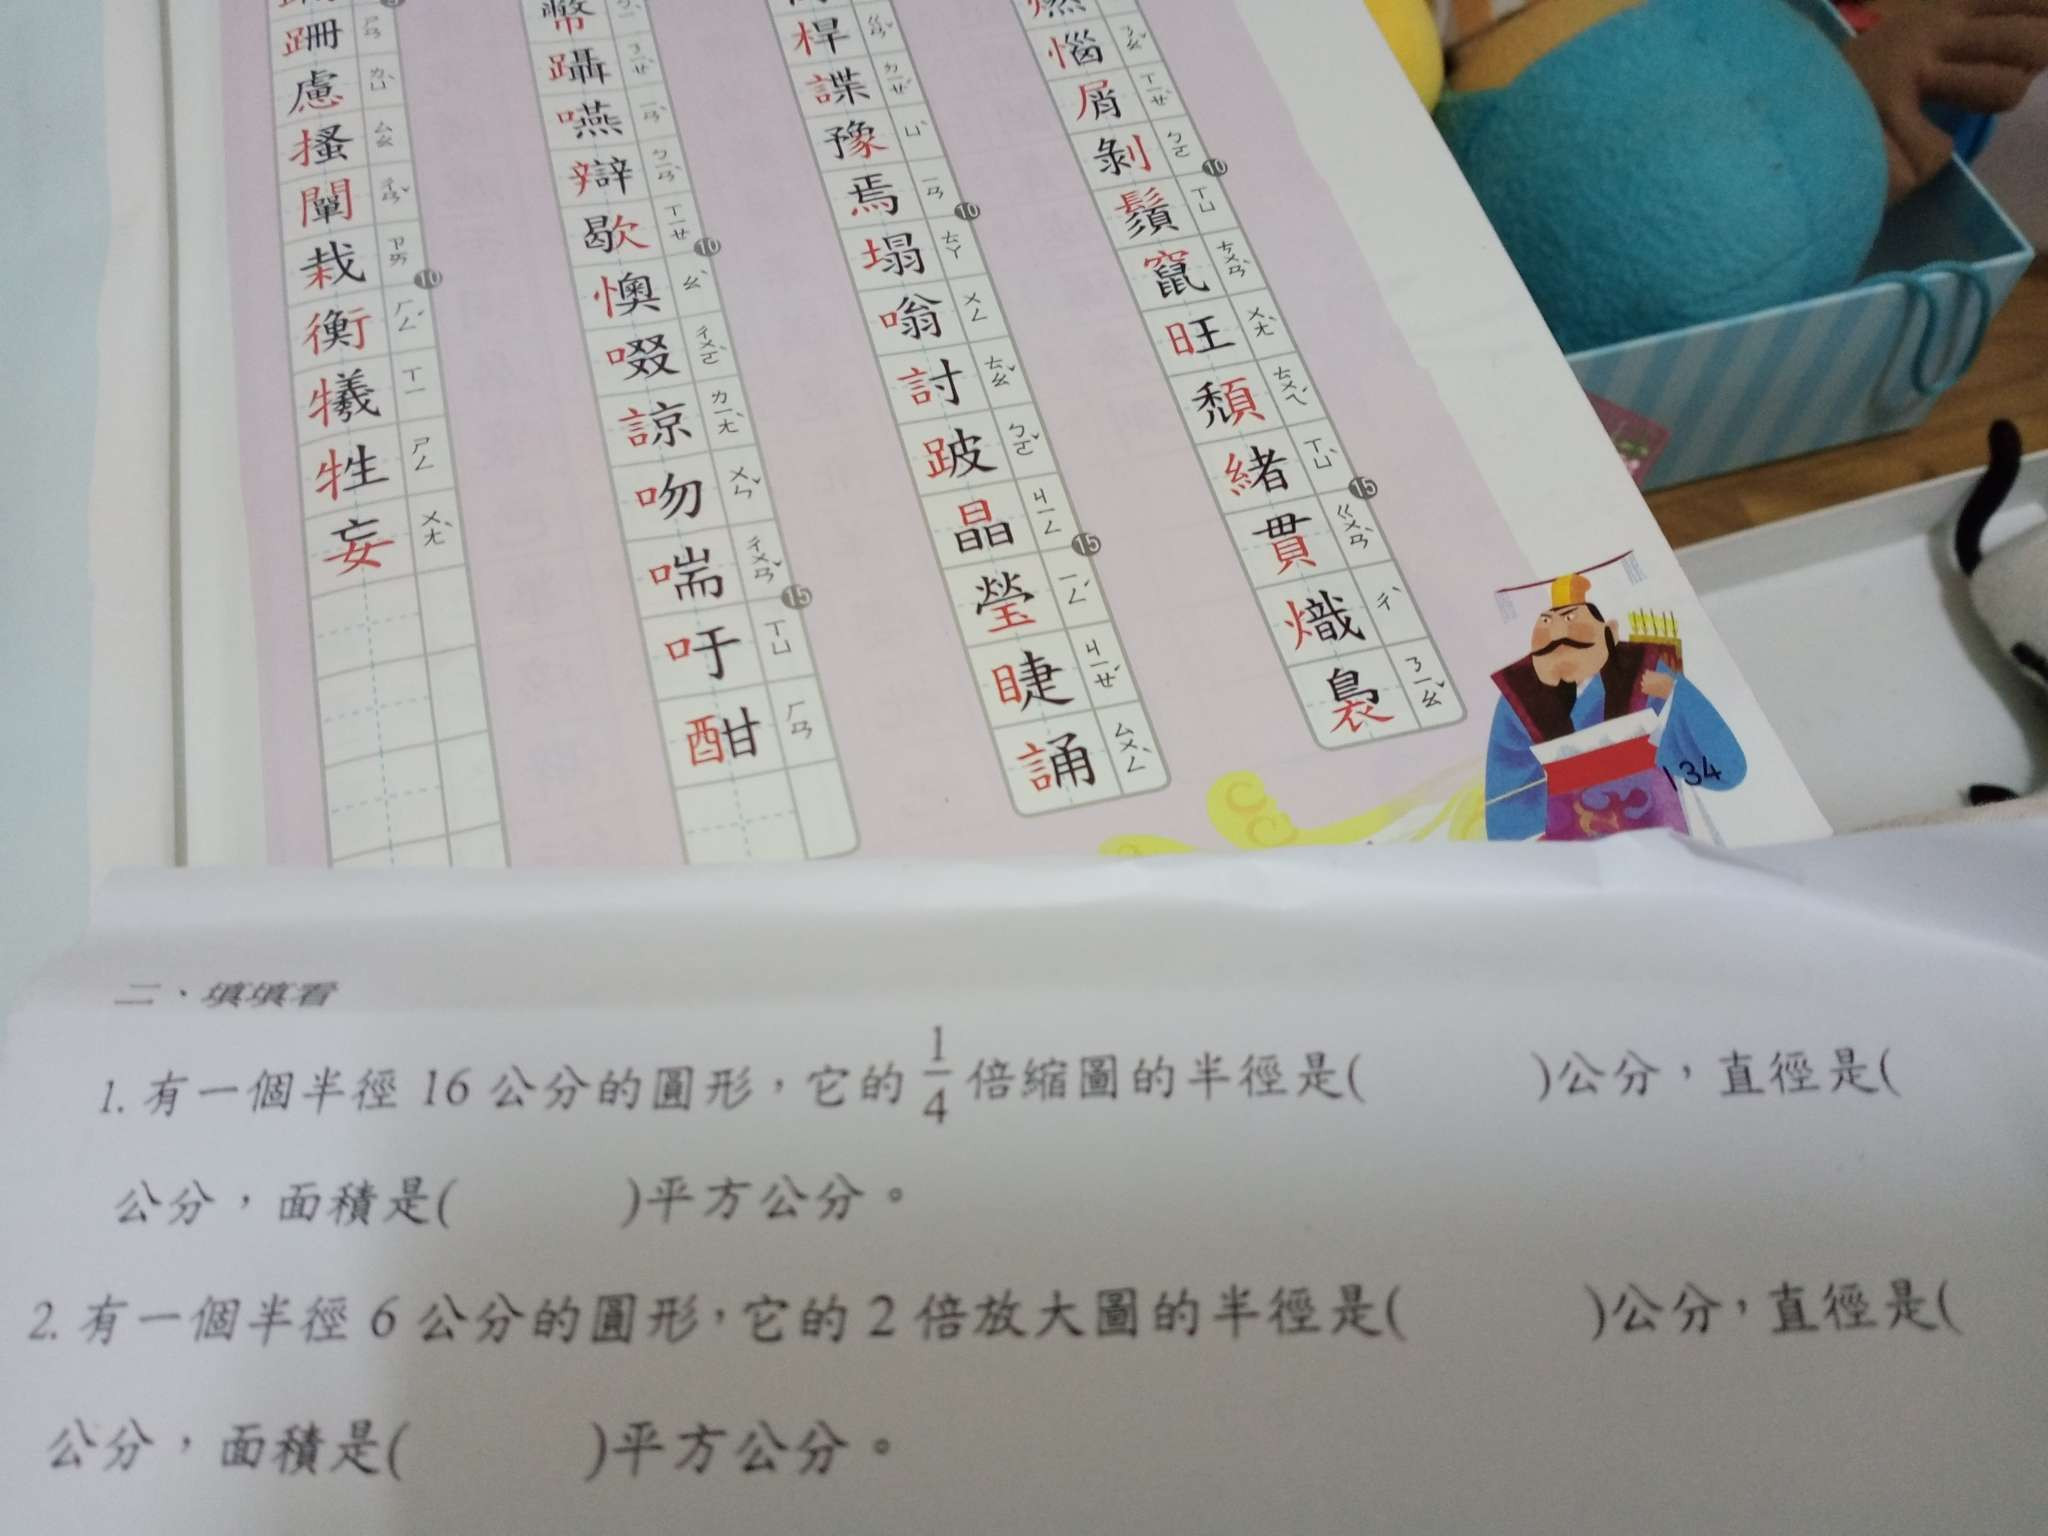 珊 ㄕㄢ
慮 ㄌㄩˋ
搔 ㄙㄠ
闡 ㄔㄢˇ
栽 ㄗㄞ
10
衡 ㄏㄥˊ
犧 ㄒㄧ
牲 ㄕㄥ
妄 ㄨㄤˋ
幣 ㄅㄧˋ
躡 ㄋㄧㄝˋ
嚥 ㄧㄢˋ
辯 ㄅㄧㄢˋ
歇 ㄒㄧㄝ
10
懊 ㄠˋ
啜 ㄔㄨㄛˋ
諒 ㄌㄧㄤˋ
吻 ㄨㄣˇ
喘 ㄔㄨㄢˇ
15
吁 ㄒㄩ
酣 ㄏㄢ
桿 ㄍㄢˇ
諜 ㄉㄧㄝˊ
豫 ㄩˋ
焉 ㄧㄢ
10
塌 ㄊㄚ
嗡 ㄨㄥ
討 ㄊㄠˇ
跛 ㄅㄛˇ
晶 ㄐㄧㄥ
15
瑩 ㄧㄥˊ
睫 ㄐㄧㄝˊ
誦 ㄙㄨㄥˋ
燃
惱 ㄋㄠˇ
屑 ㄒㄧㄝˋ
剝 ㄅㄛ
10
鬚 ㄒㄩ
竄 ㄘㄨㄢˋ
旺 ㄨㄤˋ
頹 ㄊㄨㄟˊ
緒 ㄒㄩˋ
15
貫 ㄍㄨㄢˋ
熾 ㄔˋ
裊 ㄋㄧㄠˇ
134
二、填填看
1. 有一個半徑 16 公分的圓形，它的 1/4 倍縮圖的半徑是( )公分，直徑是(
公分，面積是( )平方公分。
2. 有一個半徑 6 公分的圓形，它的 2 倍放大圖的半徑是( )公分，直徑是(
公分，面積是( )平方公分。